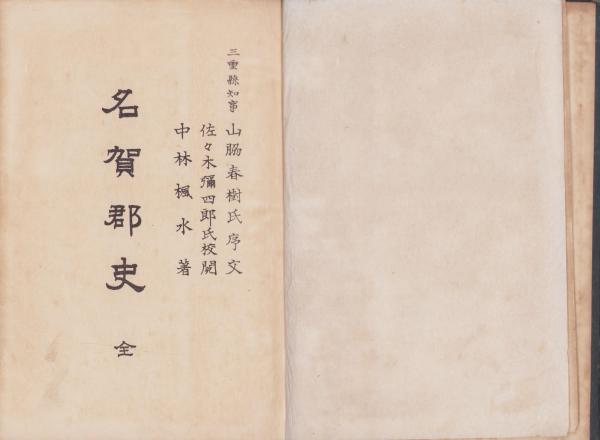 三重縣知事 山脇春樹氏序文
佐々木彌四郎氏校閲
中林楓水 著
名賀郡史 全